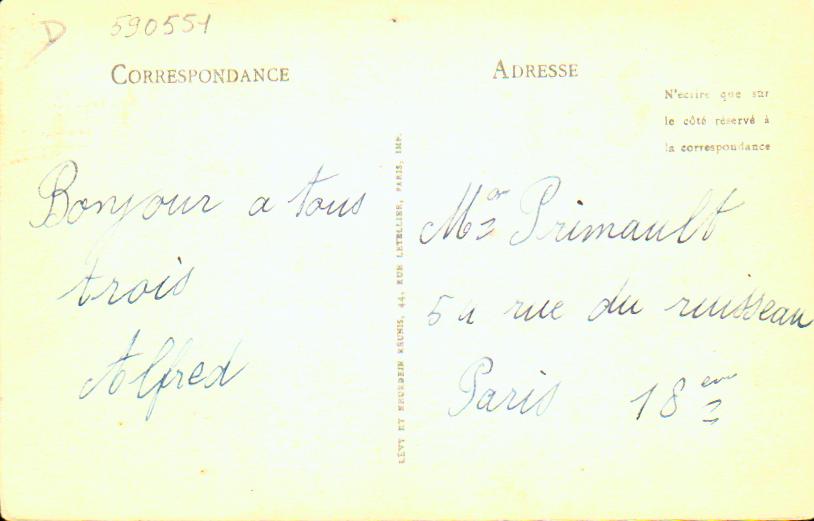 D 590551
CORRESPONDANCE
ADRESSE
N'écrire que sur
le côté réservé à
la correspondance
Bonjour a tous
trois
Alfred
LÉVY ET NEURDEIN RÉUNIS, 44, RUE LETELLIER, PARIS, IMP.
Primault
rue du ruisseau
Paris 18 eme